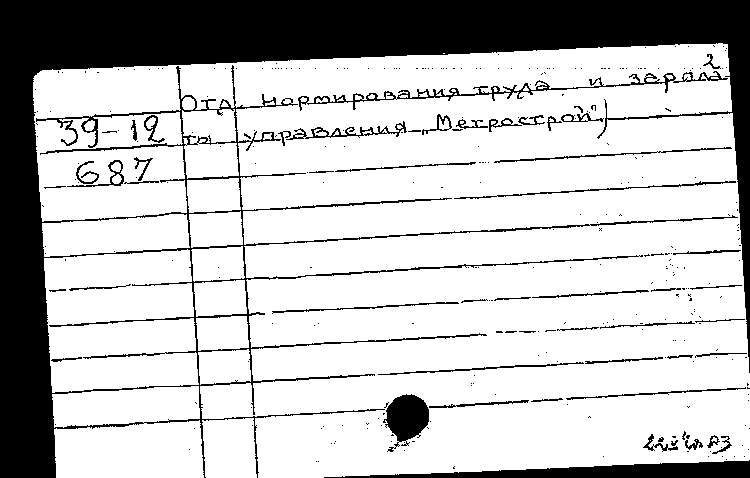 2
Отд. нормирования труда и зарпла
39-12 ты управления „Метрострой")
687